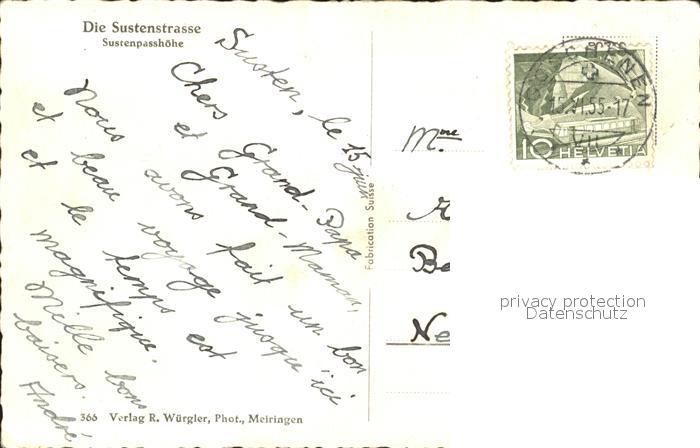 Die Sustenstrasse
Sustenpasshöhe
Susten, le 15 juin
Chers Grand-Papa
et Grand-Maman,
Nous avons fait un bon
et beau voyage jusqu'ici
et le temps est
magnifique.
Mille bons
baisers.
André
366 Verlag R. Würgler, Phot., Meiringen
Fabrication Suisse
GÖSCHENEN
15.VI.55-17
VII
10 HELVETIA
Mme
Ne
privacy protection
Datenschutz